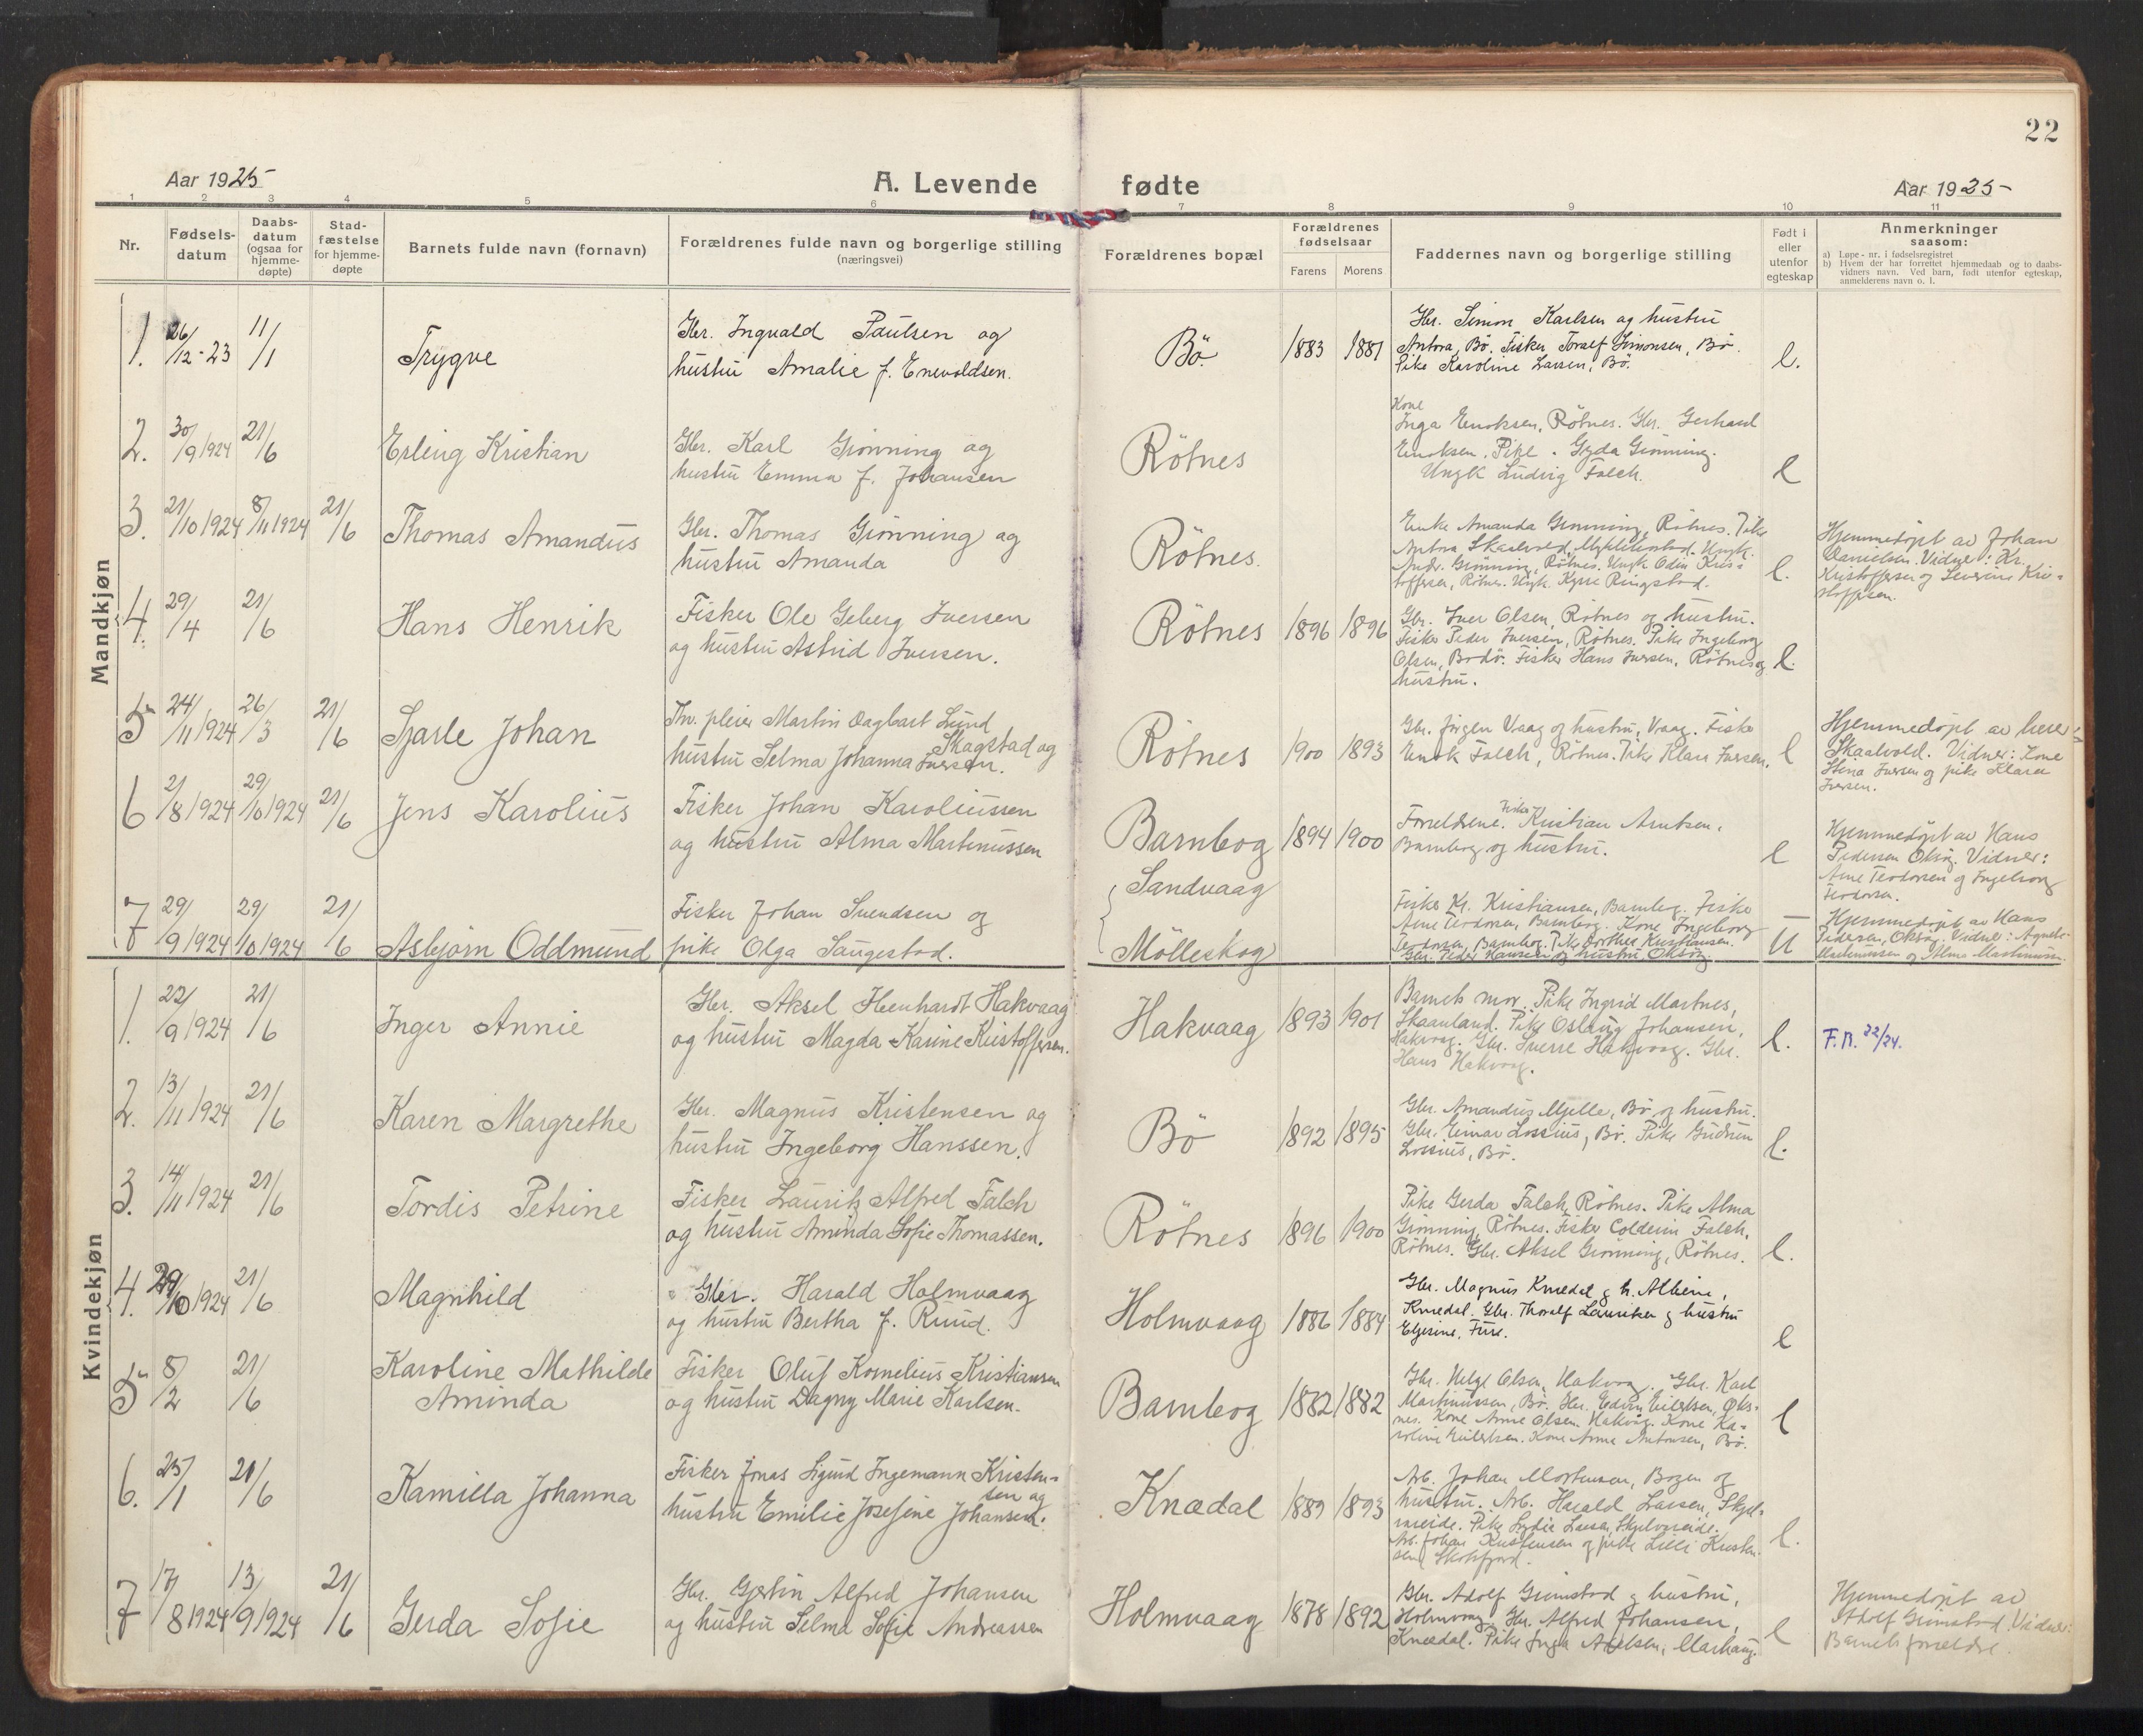 22
Aar 1925
A. Levende fødte
Aar 1925
1 2 3 4 5 6 7 8 9 10 11
Nr.
Fødsels-
datum
Daabs-
datum
(ogsaa for
hjemme-
døpte)
Stad-
fæstelse
for hjemme-
døpte
Barnets fulde navn (fornavn)
Forældrenes fulde navn og borgerlige stilling
(næringsvei)
Forældrenes bopæl
Forældrenes
fødselsaar
Farens
Morens
Faddernes navn og borgerlige stilling
Født i
eller
utenfor
egteskap
Anmerkninger
saasom:
a) Løpe-nr. i fødselsregistret
b) Hvem der har forrettet hjemmedaab og to daabs-
vidners navn. Ved barn, født utenfor egteskap,
anmelderens navn o. l.
Mandkjøn
1. 26/12-23 11/1
Trygve
Gbr. Ingvald Paulsen og
hustru Amalie f. Enevoldsen.
Bö. 1883 1881
Gbr. Simon Karlsen og hustru
Antora, Bö. Fisker Toralf Simonsen, Bö.
Pike Karoline Larsen, Bö.
l.
2. 30/9 1924 21/6
Erling Kristian
Gbr. Karl Grönning og
hustru Emma f. Johansen
Rötnes
Kone
Inga Enoksen, Rötnes. Gbr. Gerhard
Enoksen. Pike Gyda Grönning.
Ungk Ludvig Falch.
l
3. 21/10 1924 8/11 1924 21/6
Thomas Amandus
Gbr. Thomas Grönning og
hustru Amanda
Rötnes.
Enke Amanda Grönning, Rötnes. Pike
Antora Skaalvold, Ungk.
Andr. Grönning, Rötnes. Ungk Odin Kris-
toffersen, Rötnes. Ungk Ringstad.
l.
Hjemmedöpt av Johan
Danielsen. Vidner: Kr.
Kristoffersen og Severine Kri-
stoffersen.
4. 29/4 21/6
Hans Henrik
Fisker Ole Geberg Iversen
og hustru Astrid Iversen.
Rötnes 1896 1896
Gbr. Iver Olsen, Rötnes og hustru.
Fisker Peder Iversen, Rötnes. Pike Ingeborg
Olsen, Bodö. Fisker Hans Iversen, Rötnes og
hustru.
l.
5 24/11 1924 26/3 21/6
Sjarle Johan
Tlv. pleier Martin Dagbart Lund
Skagstad og
hustru Selma Johanna Iversen.
Rötnes 1900 1893
Gbr. Jörgen Vaag og hustru, Vaag. Fisker
Enok Falch, Rötnes. Pike Klara Iversen.
l
Hjemmedöpt av lærer
Skaalvold. Vidner: Kone
Stina Iversen og pike Klara
Iversen.
6 21/8 1924 29/10 1924 21/6
Jens Karolius
Fisker Johan Karoliussen
og hustru Alma Martinussen
Barnbog 1894 1900
Forældrene. Fisker Kristian Arntsen,
Barnbog og hustru.
l
Hjemmedöpt av Hans
Pedersen Oksög. Vidner:
Arne Teodorsen og Ingeborg
Teodorsen.
7 29/9 1924 29/10 1924 21/6
Asbjörn Oddmund
Fisker Johan Svendsen og
pike Olga Saugestad.
Sandvaag
Mölleskog
Fisker Kr. Kristiansen, Barnbog. Fisker
Arne Teodorsen, Barnbog. Kone Ingeborg
Teodorsen, Barnbog. Pike Dorthea Kristiansen.
Gbr. Peder Hansen og hustru Oksög.
U
Hjemmedöpt av Hans
Pedersen, Oksög. Vidner:
Martinussen og Alma Martinussen.
Kvindekjøn
1. 22/9 1924 21/6
Inger Annie
Gbr. Aksel Henhardt Hakvaag
og hustru Magda Karine Kristoffersen.
Hakvaag 1893 1901
Barnets mor. Pike Ingrid Martnes,
Skaanland. Pike Oslaug Johansen,
Hakvaag. Gbr. Sverre Hakvaag. Gbr.
Hans Hakvaag.
l.
F.R. 22/24.
2. 13/11 1924 21/6
Karen Margrethe
Gbr. Magnus Kristensen og
hustru Ingeborg Hanssen.
Bö 1892 1895
Gbr. Amandus Mjelle, Bö og hustru.
Gbr. Einar Lossius, Bö. Pike Gudrun
Lossius, Bö.
l.
3. 14/11 1924 21/6
Tordis Petrine
Fisker Lauritz Alfred Falch
og hustru Aminda Sofie Thomassen.
Rötnes 1896 1900
Pike Gerda Falch, Rötnes. Pike Alma
Grönning, Rötnes. Fisker Colderin Falch,
Rötnes. Gbr. Aksel Grönning, Rötnes.
l.
4. 29/10 1924 21/6
Magnhild
Gbr. Harald Holmvaag
og hustru Bertha f. Ruud.
Holmvaag 1886 1884
Gbr. Magnus Knædal og h. Albine,
Knædal. Gbr. Thoralf Lauritsen og hustru
Elfrine, Fure.
l
5 8/2 21/6
Karoline Mathilde
Aminda
Fisker Oluf Kornelius Kristiansen
og hustru Dagny Marie Karlsen.
Barnbog 1882 1882
Gbr. Helge Olsen, Hakvaag. Gbr. Karl
Martinussen, Bö. Gbr. Edvin Eilertsen, Öks-
nes. Kone Anne Olsen, Hakvåg. Kone Ka-
roline Eilertsen. Kone Anna Antonsen, Bö.
l
6. 25/1 21/6
Kamilla Johanna
Fisker Jonas Sigurd Ingemann Kristen-
sen og
hustru Emilie Josefine Johansen.
Knædal 1889 1893
Arb. Johan Mortensen, Bogen og
hustru. Arb. Harald Larsen, Skjel-
vareide. Pike Lydia Larsen, Skjelvareide.
Arb. Johan Kristensen og pike Lilli Kristen-
sen, Skotsfjord.
l.
7 17/8 1924 13/9 1924 21/6
Gerda Sofie
Gbr. Gjertin Alfred Johansen
og hustru Selma Sofie Andreassen
Holmvaag 1878 1892
Gbr. Adolf Grimstad og hustru,
Holmvaag. Gbr. Alfred Johansen,
Knædal. Pike Inga Axelsen, Marhaug.
l
Hjemmedöpt av
Adolf Grimstad. Vidner:
Barnets forældre.